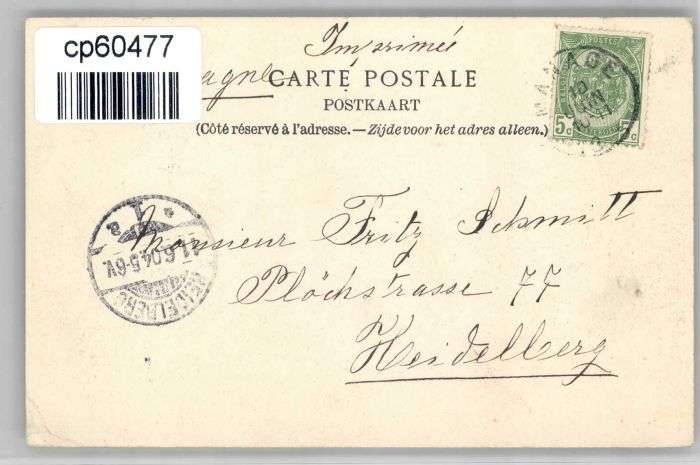 cp60477
Imprimé
agne
CARTE POSTALE
POSTKAART
(Côté réservé à l'adresse. — Zijde voor het adres alleen.)
MANAGE
5c 5c
Monsieur Fritz Schmitt
Plöchstrasse 77
Heidelberg
HEIDELBERG
11.6.04.5-6V.